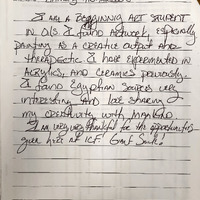 I am a Beginning art student
in oils & found Artwork, especially
painting as a creative output and
therapeutic. I have experimented in
Acrylics, and ceramics previously.
I found Egyptian Sources very
interesting and love sharing
my creativity with mankind.
I am very very thankful for the opportunities
given here at ICF.